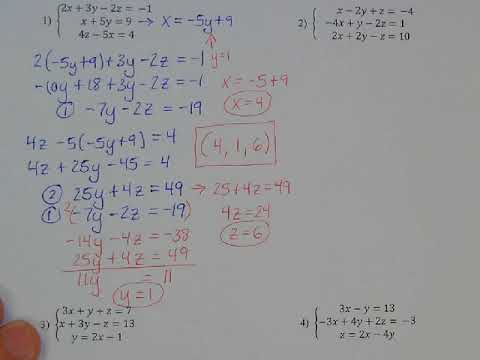 1) { 2x + 3y − 2z = −1
x + 5y = 9 → x = −5y + 9
4z − 5x = 4
2(−5y+9) + 3y − 2z = −1
y=1
−10y + 18 + 3y − 2z = −1
x = −5+9
① −7y − 2z = −19
x = 4
4z − 5(−5y+9) = 4
(4, 1, 6)
4z + 25y − 45 = 4
② 25y + 4z = 49 → 25+4z=49
① 2(−7y − 2z = −19)
4z = 24
−14y − 4z = −38
z = 6
25y + 4z = 49
11y = 11
y = 1
2) { x − 2y + z = −4
−4x + y − 2z = 1
2x + 2y − z = 10
3) { 3x + y + z = 7
x + 3y − z = 13
y = 2x − 1
4) { 3x − y = 13
−3x + 4y + 2z = −3
x = 2x − 4y